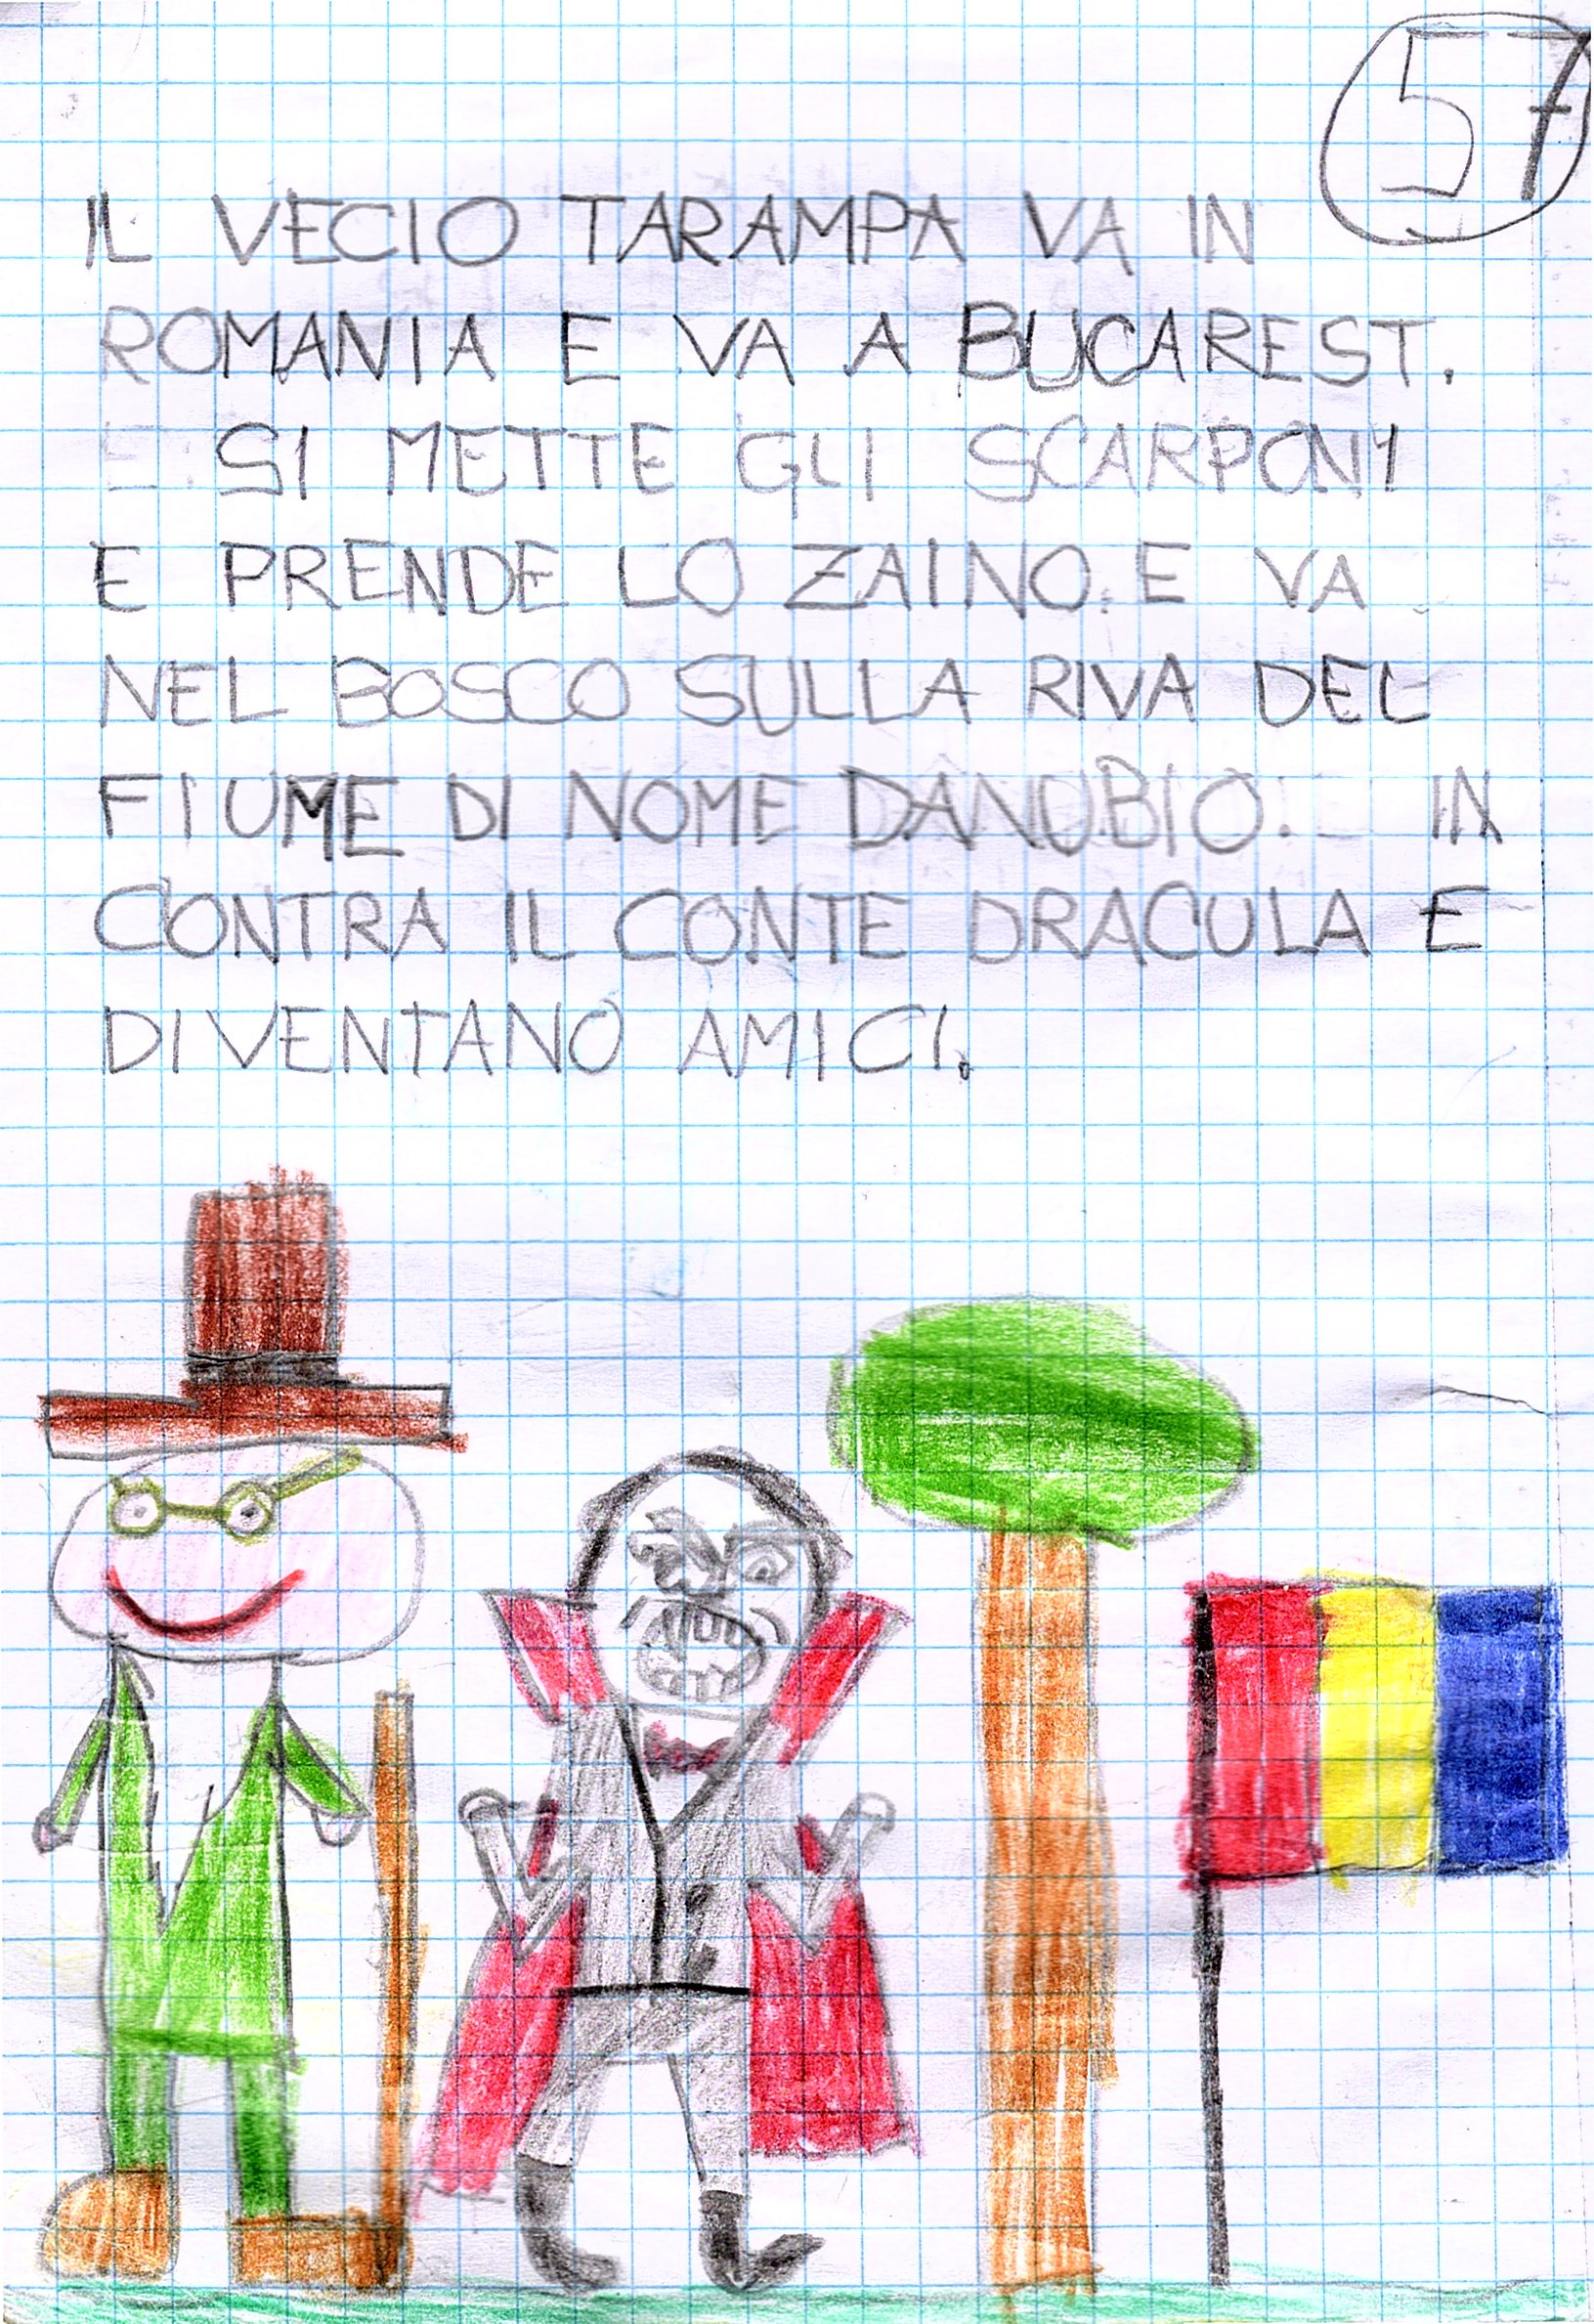 57
IL VECIO TARAMPA VA IN
ROMANIA E VA A BUCAREST.
SI METTE GLI SCARPONI
E PRENDE LO ZAINO. E VA
NEL BOSCO SULLA RIVA DEL
FIUME DI NOME DANUBIO. IN
CONTRA IL CONTE DRACULA E
DIVENTANO AMICI.